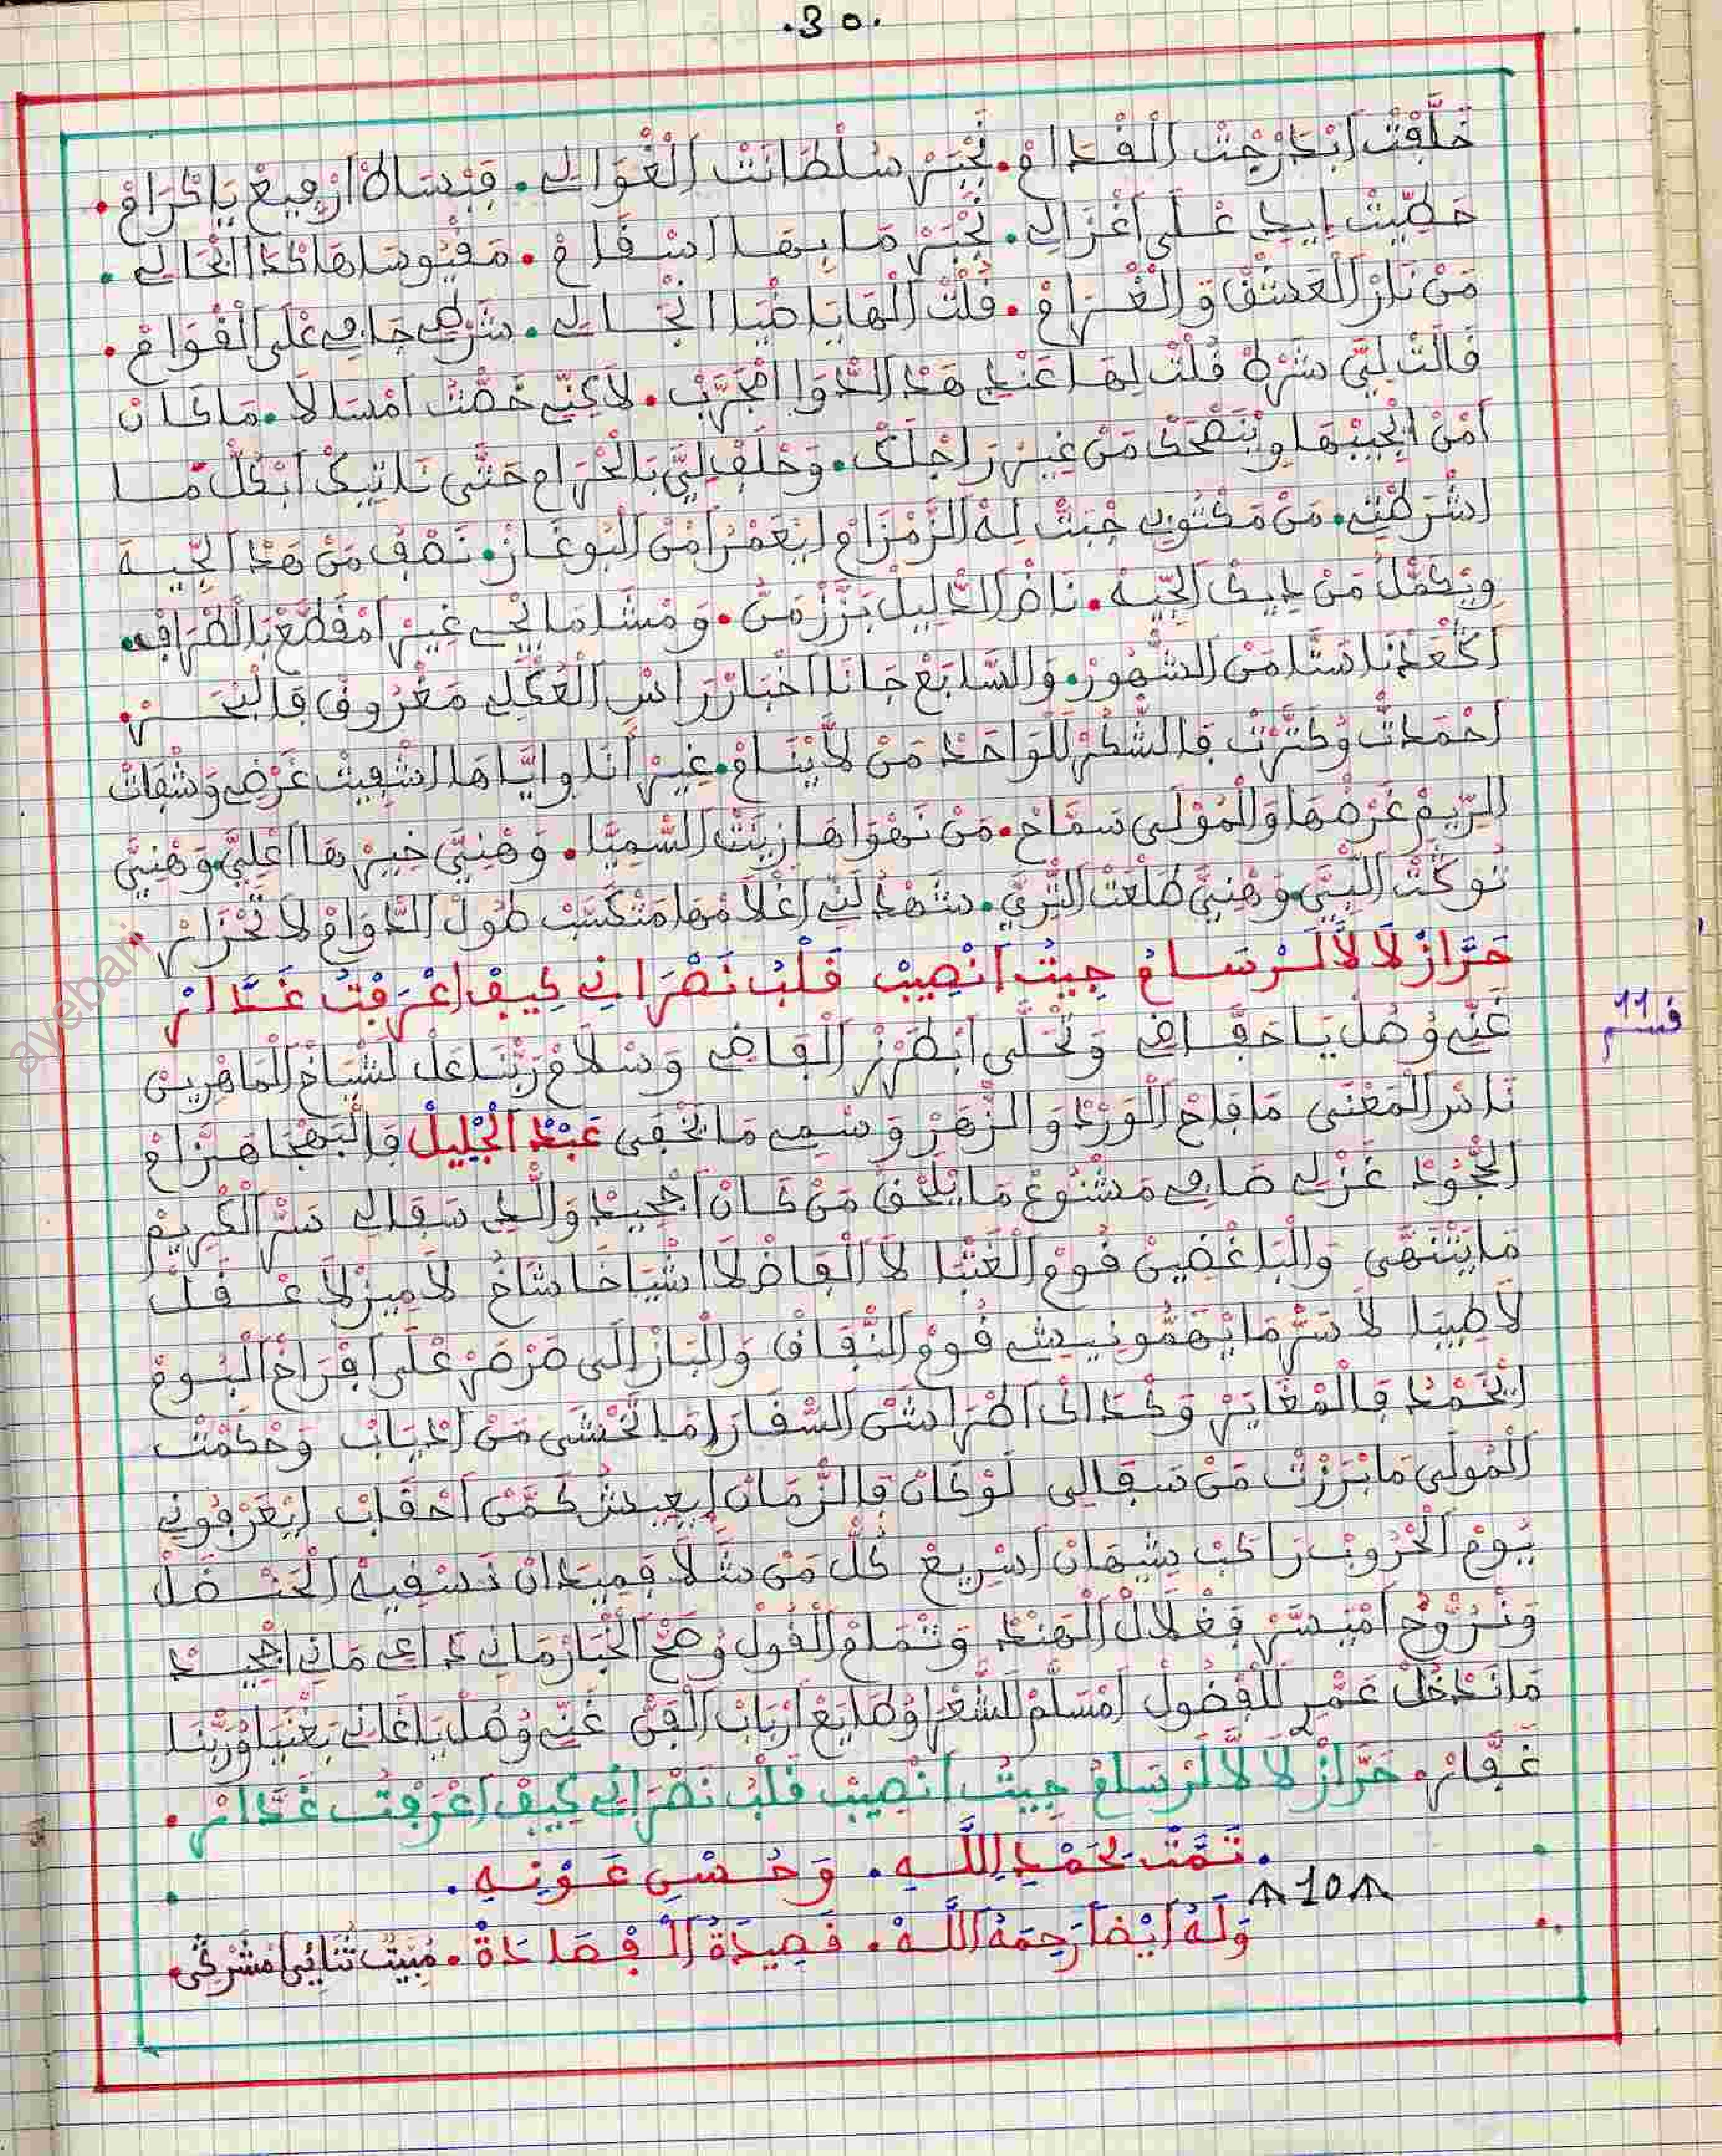 .30.
خَلَّفْتْ اَبْدَرْجْتْ اَلْقْدَامْ. نَجْبَرْ سُلْطَانْتْ اَلْغْوَالِي. فَبْسَاطْ اَرْفِيعْ يَا كْرَامْ.
حَطِّيتْ اِيدِي عْلَى اَغْزَالِي. نَجْبَرْ مَا بِهَا اسْقَامْ. مَقْيُوسَا هَاكْدَا اَنْجَالِي.
مَنْ نَارْ اَلْعَشْقْ وَالْغْرَامْ. قُلْتْ اَلْهَا يَا ضْيَا انْجَالِي. شَرْطِي جَارِي عْلَى الْقْوَامْ.
قَالَتْ لِيَّ شَرْطْ قُلْتْ لِهَا عَنْدِي هَدْ اَلدّْوَا اَمْجَرَّبْ. لَاكِنِّي خَصّْتْ اَمْسَالَا. مَا كَانْ
اَمْنْ اِيْجِيبْهَا وِيْنَصْحَكْ مَنْ غِيرْ رَاجْلَكْ. وَحْلَفْ لِيَّ بَالْحْرَامْ حَتَّى نَاتِيكْ اَبْكُلّْ مَا
اشْرَطْتِي. مَنْ مَكْتُوبِي جْبَتْ لِهْ الزَّمْزَامْ اِيعَمْرْ اَمْنْ اَلْبُوغَازْ. نَصْفْ مَنْ هَدْ اَلْجِّيهَ
وِيْكَمَّلْ مَنْ دِيكْ اَلْجِّيهْ. نَاضْ اَلدّْلِيلْ بَزَّزْ مَنُّ. وَمْشَا مَا اِيْجِي غِيرْ اَمْقَطَّعْ بَالطّْرَافْ.
اَكْعَدْنَا سَتَّا مَنْ الشّْهُورْ. وَالسَّابَعْ جَانَا اَخْبَارْ رَاسْ اَلْعُكْلِي مَغْرُوقْ فَالْبْحَرْ.
اَحْمَدْتْ وُكَثَّرْتْ فَالشُّكْرْ لَلْوَاحَدْ مَنْ لَا يْنَامْ. غِيرْ أَنَا وِايَّاهَا اشْفِيتْ غَرْضِي وَشْفَاتْ
الرِّيمْ غَرْضْهَا وَالْمُوْلَى سَمَّاحْ. مَنْ نَهْوَاهَا زِينَتْ السّْمِيَّا. وَهْنِيَّ خِيرْهَا اَعْلِيَّ وَهْنِيَّ
تُوكَتْ اَلنْبِيّ وَهْنِيَّ طَلْعَتْ الثّْرِيّ. شَهْدْ لَنِّي اَغْلَامْهَا مَتْكَسَّبْ طُولْ الدّْوَامْ لَا تَحْزَارْ
حَرَّازْ لَالَّا لَرْسَامْ جِيتْ اَنْصِيبْ قَلْبْ نَصْرَانِي كِيفْ اَعْرَفْتْ غَدَّارْ
قسم 11
غَنِّي وُصُلْ يَا حَفَّاضِي وَتْحَلَّى اَبْطَرْزْ اَلْفَاضِي وَسْلَامْ رَبّْنَا عَلْ لَشْيَاخْ الْمَاهْرِينْ
نَاسْ الْمَعْنَى مَا فَاحْ اَلْوَرْدْ وَالزّْهَرْ وَسْمِي مَا يَخْفَى عَبْدْ اَلْجْلِيلْ فَالْبَهْجَا هَزَّامْ
الْجْحُودْ غَزْلِي صَافِي مَشْنُوعْ مَا يْلَحْقْ مَنْ كَانْ اَجْحِيدْ وَالْدِي سَقَالِي سَرّْ الْكْرِيمْ
مَا يَنْتْهَى وَالْبَاغْضِينْ قُومْ اَلْغَتْبَا لَا اَلْفَاضْ لَا اشْيَاخَا شَاخُ لَا مِيزْ لَا عْقَلْ
لَا طِيبَا لَا سَرّْ مَا يْهَمُّونِيشِي قُومْ النّْفَاقْ وَالْبَازْ اِلَى صَرْصَرْ عْلَى اَفْرَاخْ اَلْبُومْ
اِيْخَمْدُ فَالْمْغَايَرْ وَكْدَاكْ اَطْرَاشَنْ السّْفَارَا مَا تَخْشَى مَنْ اَدْيَابْ وَحْكَمْتْ
اَلْمُولَى مَا بْرَزْتْ مَنْ سَقَالِي لَوْ كَانْ فَالزّْمَانْ اِيعِيشُ كَمَّنْ اَحْقَابْ اِيْعَرْفُونِي
يُومْ اَلْحْرُوبْ رَاكَبْ شِيهَانْ اَسْرِيعْ كُلّْ مَنْ شَلَّا فَمِيدَانْ نَسْقِيهْ اَلْحَنْضَلْ
وَنْرَوَّحْ اَمْيَسَّرْ فَغْلَالْ اَلْهَنْدْ وَتْمَامْ اَلْقُولْ وُصَحّْ الْخْبَارْ مَانِي دَاعِي مَانِي اَجْحِيدْ
مَا نَدْخُلْ عَمْرِي لَلْفْضُولْ اَمْسَلَّمْ لَلشُّعْرَا وُطَايَعْ اَرْبَابْ اَلْفَنّْ غَنِّي وُصُلْ يَا غَانِي بَغْنَيَا وُرَبّْنَا
غَفَّارْ. حَرَّازْ لَالَّا لَرْسَامْ جِيتْ اَنْصِيبْ قَلْبْ نَصْرَانِي كِيفْ اَعْرَفْتْ غَدَّارْ.
. تَمَّتْ بِحَمْدِ اللَّـهِ. وَحُسْنِ عَوْنِهِ.
10
وَلَهُ أَيْضًا رَحِمَهُ اللَّـهْ. قَصِيدَةُ اَلْفْصَادَةْ. مْبِيتْ ثُنَائِي اَمْشَرْكِي.
ayebari